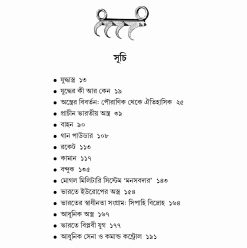 সূচি
যুদ্ধাস্ত্র ১৩
যুদ্ধের কী আর কেন ১৯
অস্ত্রের বিবর্তন: পৌরাণিক থেকে ঐতিহাসিক ২৫
প্রাচীন ভারতীয় অস্ত্র ৩৯
বাহন ৯০
গান পাউডার ১০৮
রকেট ১১৩
কামান ১১৭
বন্দুক ১৩৫
মোগল মিলিটারি সিস্টেম ‘মনসবদার’ ১৪৩
ভারতে ইউরোপের অস্ত্র ১৫৪
ভারতের স্বাধীনতা সংগ্রাম: সিপাহি বিদ্রোহ ১৬৪
আধুনিক অস্ত্র ১৬৭
ভারতে বিপ্লবী যুগ ১৭৭
আধুনিক সেনা ও কমান্ড কন্ট্রোল ১৯১